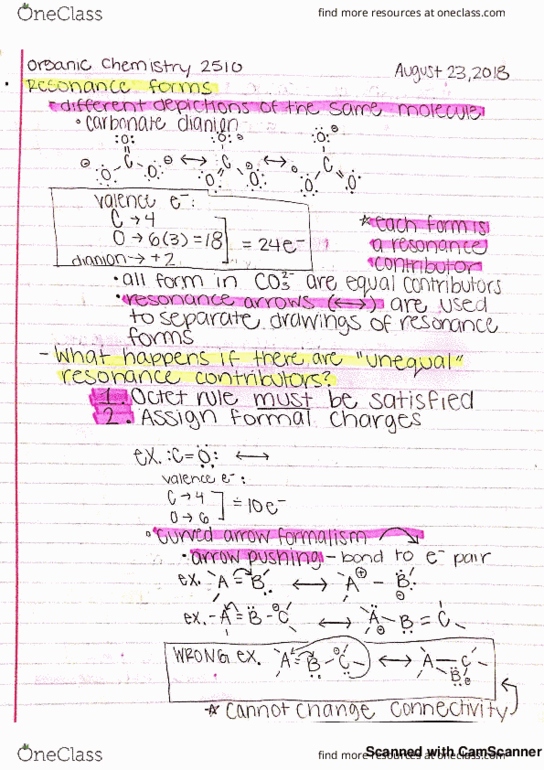 OneClass
find more resources at oneclass.com
Organic Chemistry 2510
August 23, 2018
Resonance forms
different depictions of the same molecule
• carbonate dianion
valence e⁻:
C → 4
O → 6(3) = 18
= 24e⁻
dianion → +2
* each form is
a resonance
contributor
• all form in CO₃²⁻ are equal contributors
• resonance arrows (↔) are used
to separate drawings of resonance
forms
- What happens if there are "unequal"
resonance contributors?
1. Octet rule must be satisfied
2. Assign formal charges
ex. :C=Ö: ↔
valence e⁻:
C → 4
O → 6
= 10e⁻
• curved arrow formalism
• arrow pushing - bond to e⁻ pair
ex. A = B ↔ A⊕ - B̈⊖
ex. - A = B - C ↔ A - B = C -
WRONG ex. A = B - C - ↔ A - C -
B
* Cannot change connectivity
OneClass
find more resources at oneclass.com
Scanned with CamScanner